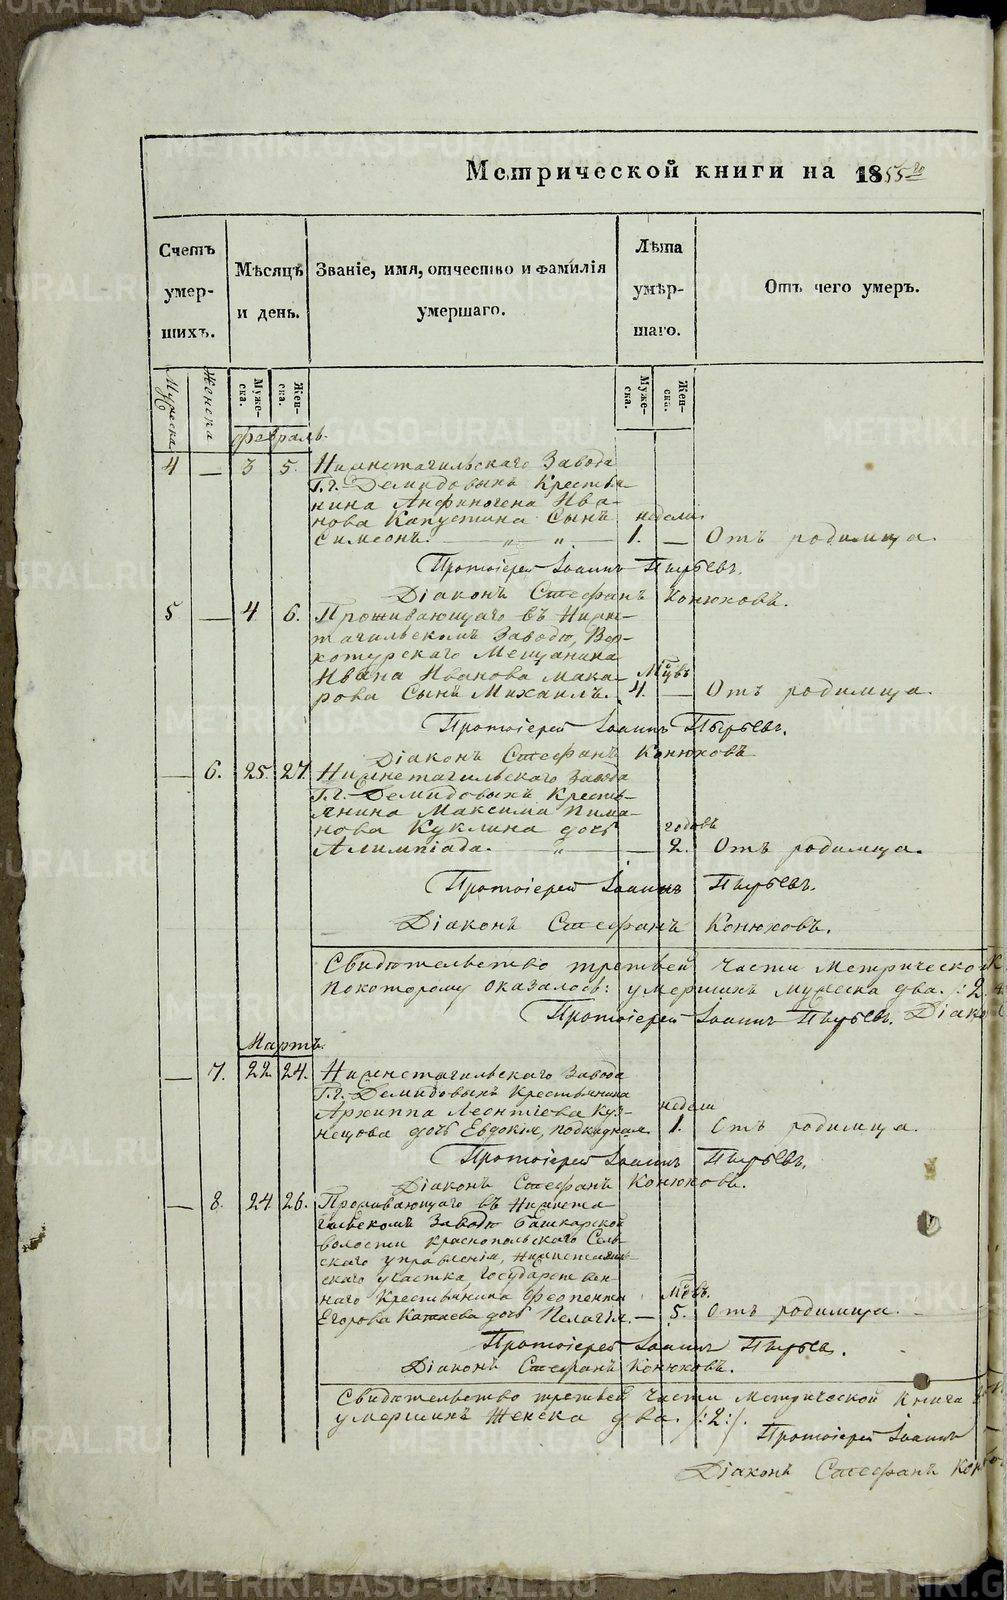 Метрической книги на 1855го
Счетъ умер-шихъ.
Мѣсяцъ и день.
Званіе, имя, отчество и фамилія умершаго.
Лѣта умѣр-шаго.
Отъ чего умеръ.
Мужеска
Женска
Муже-ска.
Жен-ска.
Муже-ска.
Жен-ска.
февраль.
4 — 3 5. Нижнетагильскаго Завода
Г.г. Демидовыхъ Крестья-
нина Анфиногена Ива-
нова Капустина Сынъ недели
Симеонъ. — „ — „ — 1. — Отъ родимца.
Протоіерей Іоаннъ Пырьевъ.
Діаконъ Стефанъ Конюховъ.
5 — 4 6. Проживающаго въ Нижне-
тагильскомъ Заводѣ, Вер-
хотурскаго Мещанина
Ивана Иванова Мака- Мцвъ
рова Сынъ Михаилъ. 4. — Отъ родимца.
Протоіерей Іоаннъ Пырьевъ.
Діаконъ Стефанъ Конюховъ
— 6. 25. 27. Нижнетагильскаго Завода
Г.г. Демидовыхъ Кресть-
янина Максима Пима-
нова Куклина дочь годовъ
Алимпіада. — „ — — 2. Отъ родимца.
Протоіерей Іоаннъ Пырьевъ.
Діаконъ Стефанъ Конюховъ.
Свидѣтельство третьей части Метрической К
покоторому оказалось: умершихъ мужеска два. /:2
Протоіерей Іоаннъ Пырьевъ. Діако
Мартъ.
— 7. 22. 24. Нижнетагильскаго Завода
Г.г. Демидовыхъ Крестьянина
Архиппа Леонтіева Куз- недели
нецова дочь Евдокія, подкидная. 1. Отъ родимца.
Протоіерей Іоаннъ Пырьевъ.
Діаконъ Стефанъ Конюховъ.
— 8. 24 26. Проживающаго въ Нижнета-
гильскомъ Заводѣ Башкарской
волости Краснопольскаго Сель-
скаго управленія, Нижнетагиль-
скаго участка, Государствен-
наго Крестьянина Феопента Мцвъ.
Егорова Катаева дочь Пелагія. — 5. Отъ родимца.
Протоіерей Іоаннъ Пырьев.
Діаконъ Стефанъ Конюховъ.
Свидѣтельство третьей части Метрической Книги
умершихъ Женска два. /:2:/.
Протоіерей Іоаннъ
Діаконъ Стефанъ Кон
METRIKI.GASO-URAL.RU